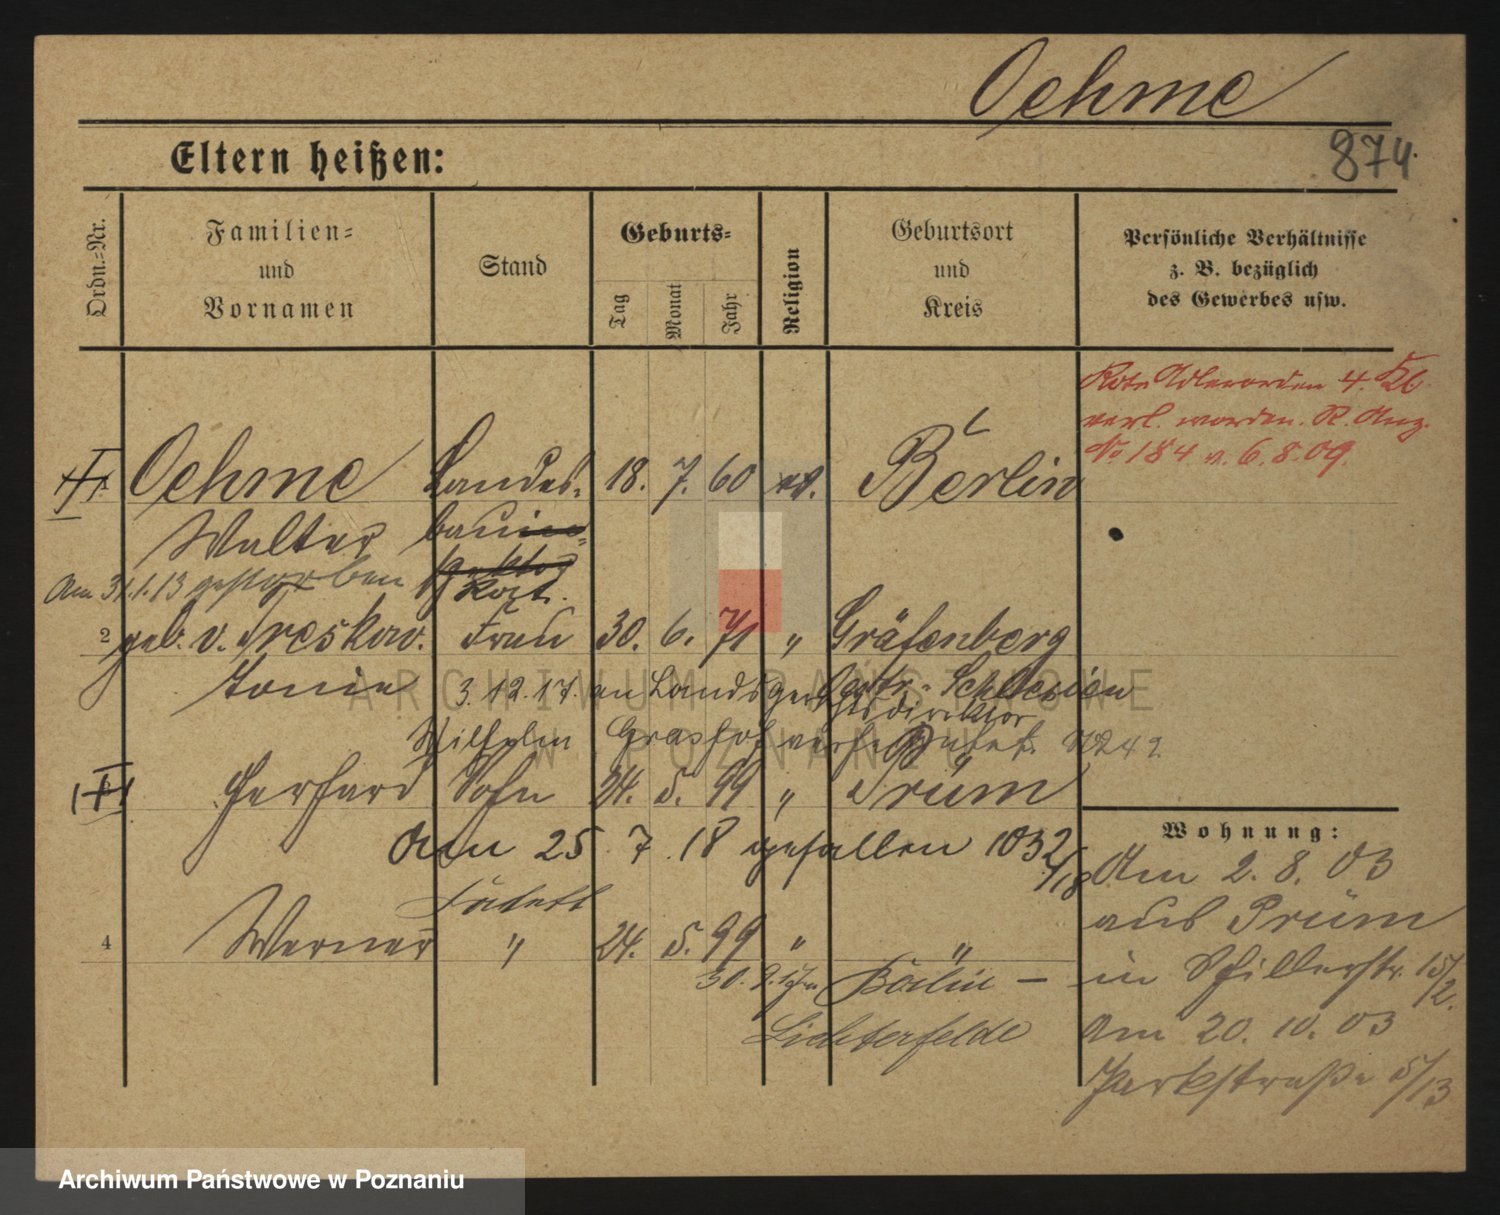 Oehme
874.
Eltern heißen:
Ordn.-Nr.
Familien-
und
Vornamen
Stand
Geburts-
Tag
Monat
Jahr
Religion
Geburtsort
und
Kreis
Persönliche Verhältnisse
z. B. bezüglich
des Gewerbes usw.
Rote Adlerorden 4. Kl.
verl. worden. R. Anz.
No 184 v. 6.8.09.
Oehme Landes- 18. 7. 60 ev. Berlin
Walter bau
Am 31.1.13 gestorben
2 geb. v. Treskow. Frau 30. 6. 71 " Gräfenberg
Tonie Östr.-Schlesien
3.12.17. an Landgerichtsdirektor
Wilhelm Grashof verh.
Gerhard Sohn 24. 5. 99 " Prüm
Am 25. 7. 18 gefallen 1032/18
Kadett
4 Werner " 24. 5. 99 " "
30. 9. Berlin —
Lichterfelde
Wohnung:
Am 2. 8. 03
aus Prüm
in Schillerstr. 15/2.
Am 20. 10. 03
Parkstraße 5/13
ARCHIWUM PAŃSTWOWE
W POZNANIU
Archiwum Państwowe w Poznaniu